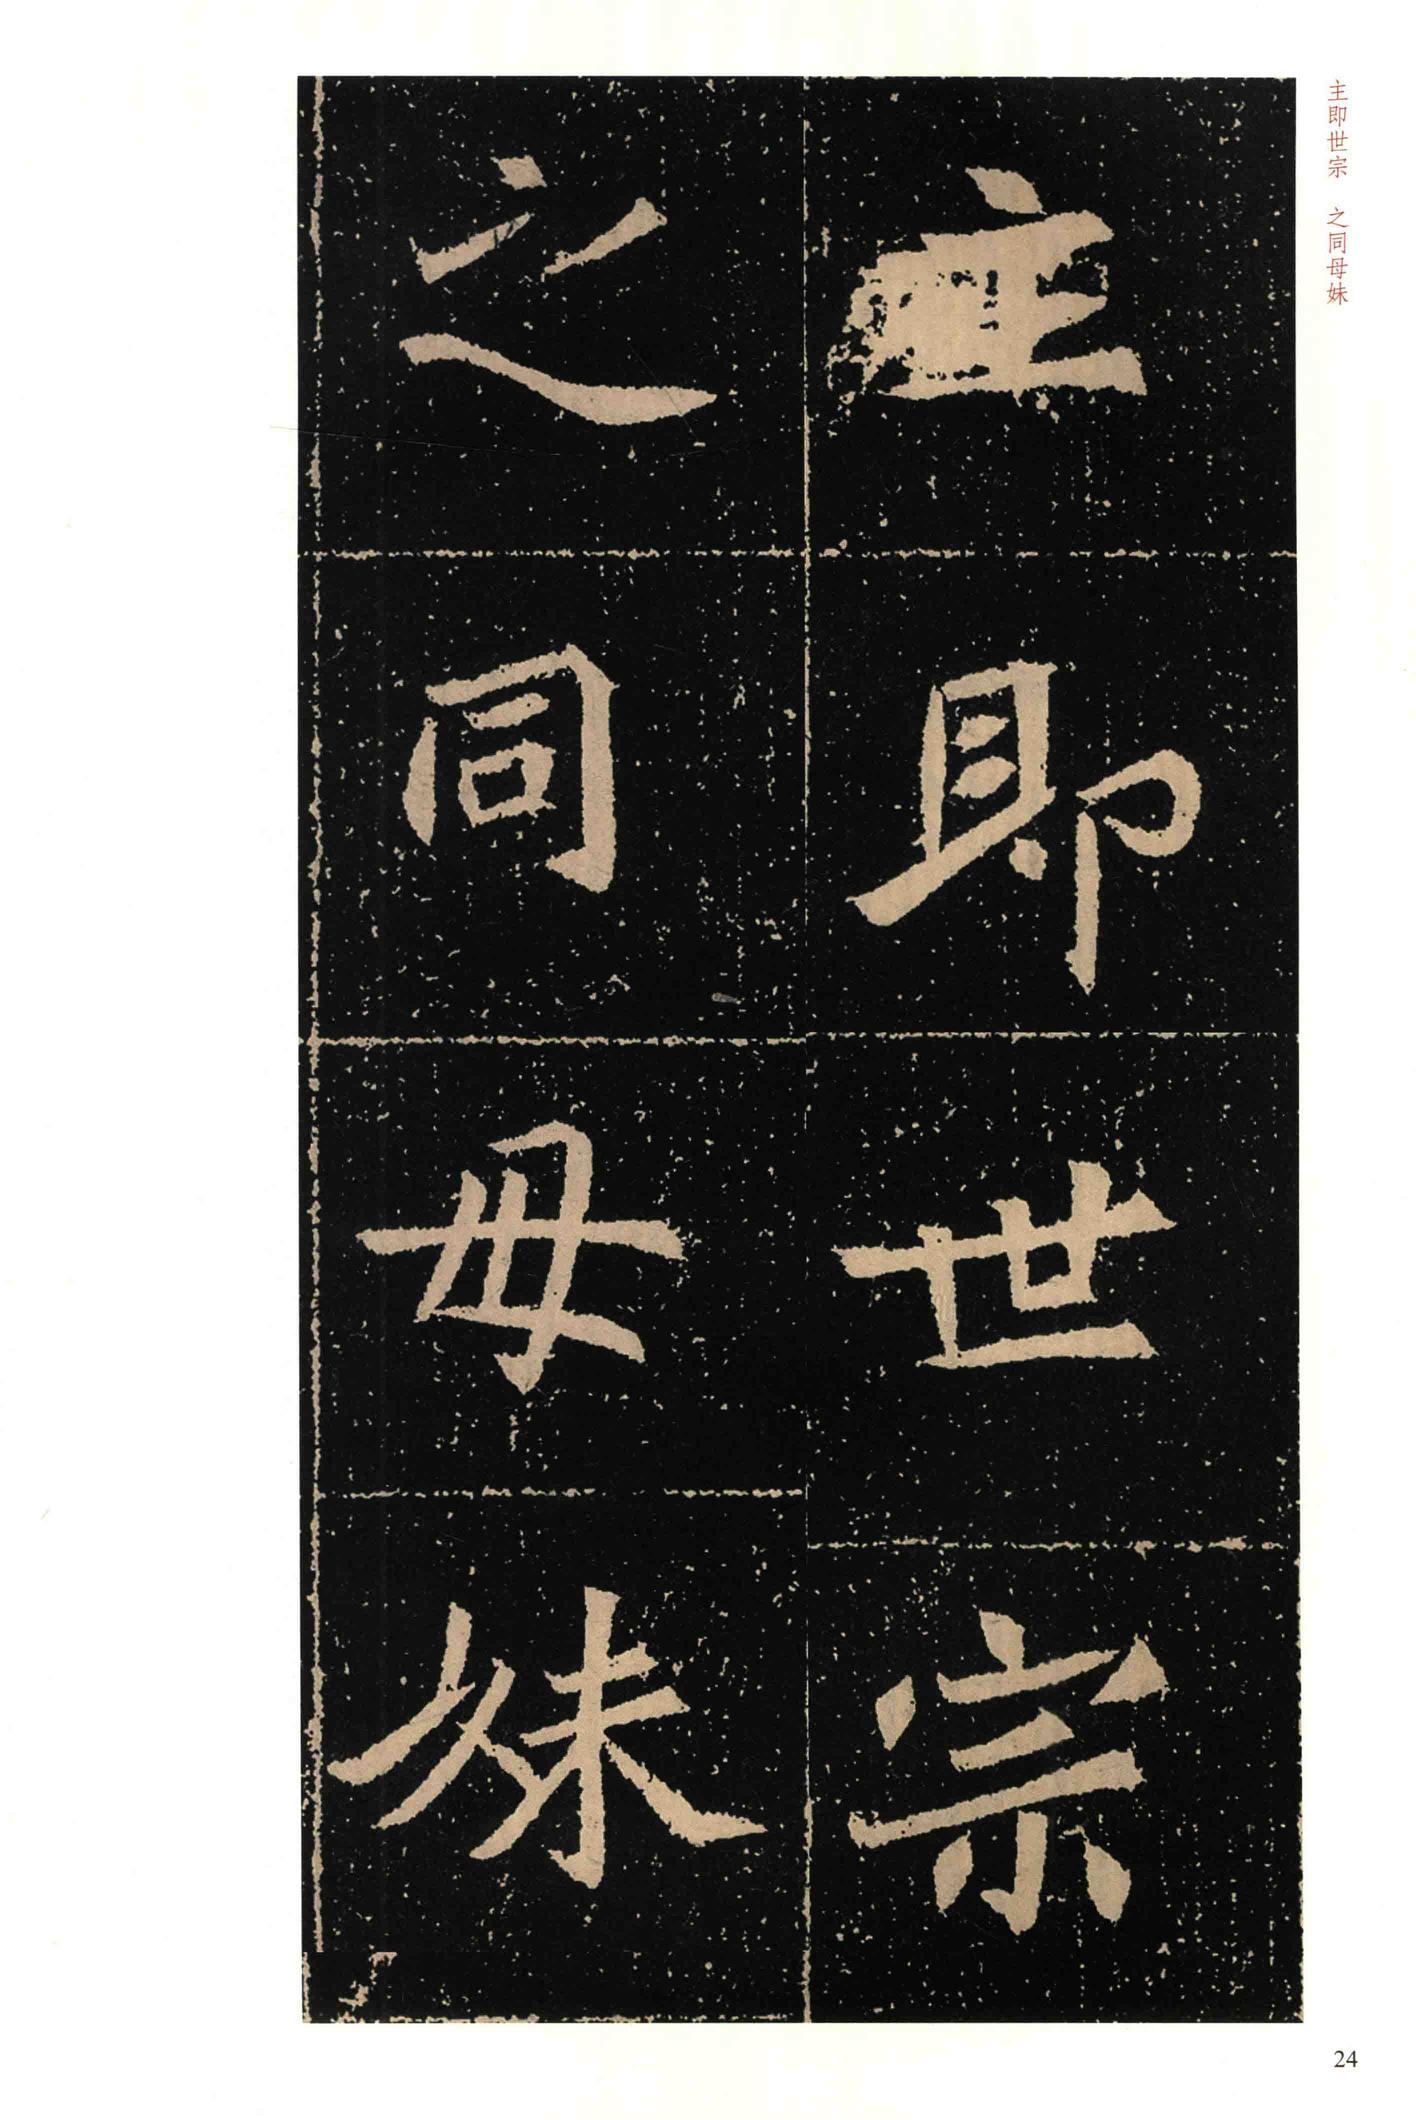 主即世宗　之同母妹
主即世宗
之同母妹
24